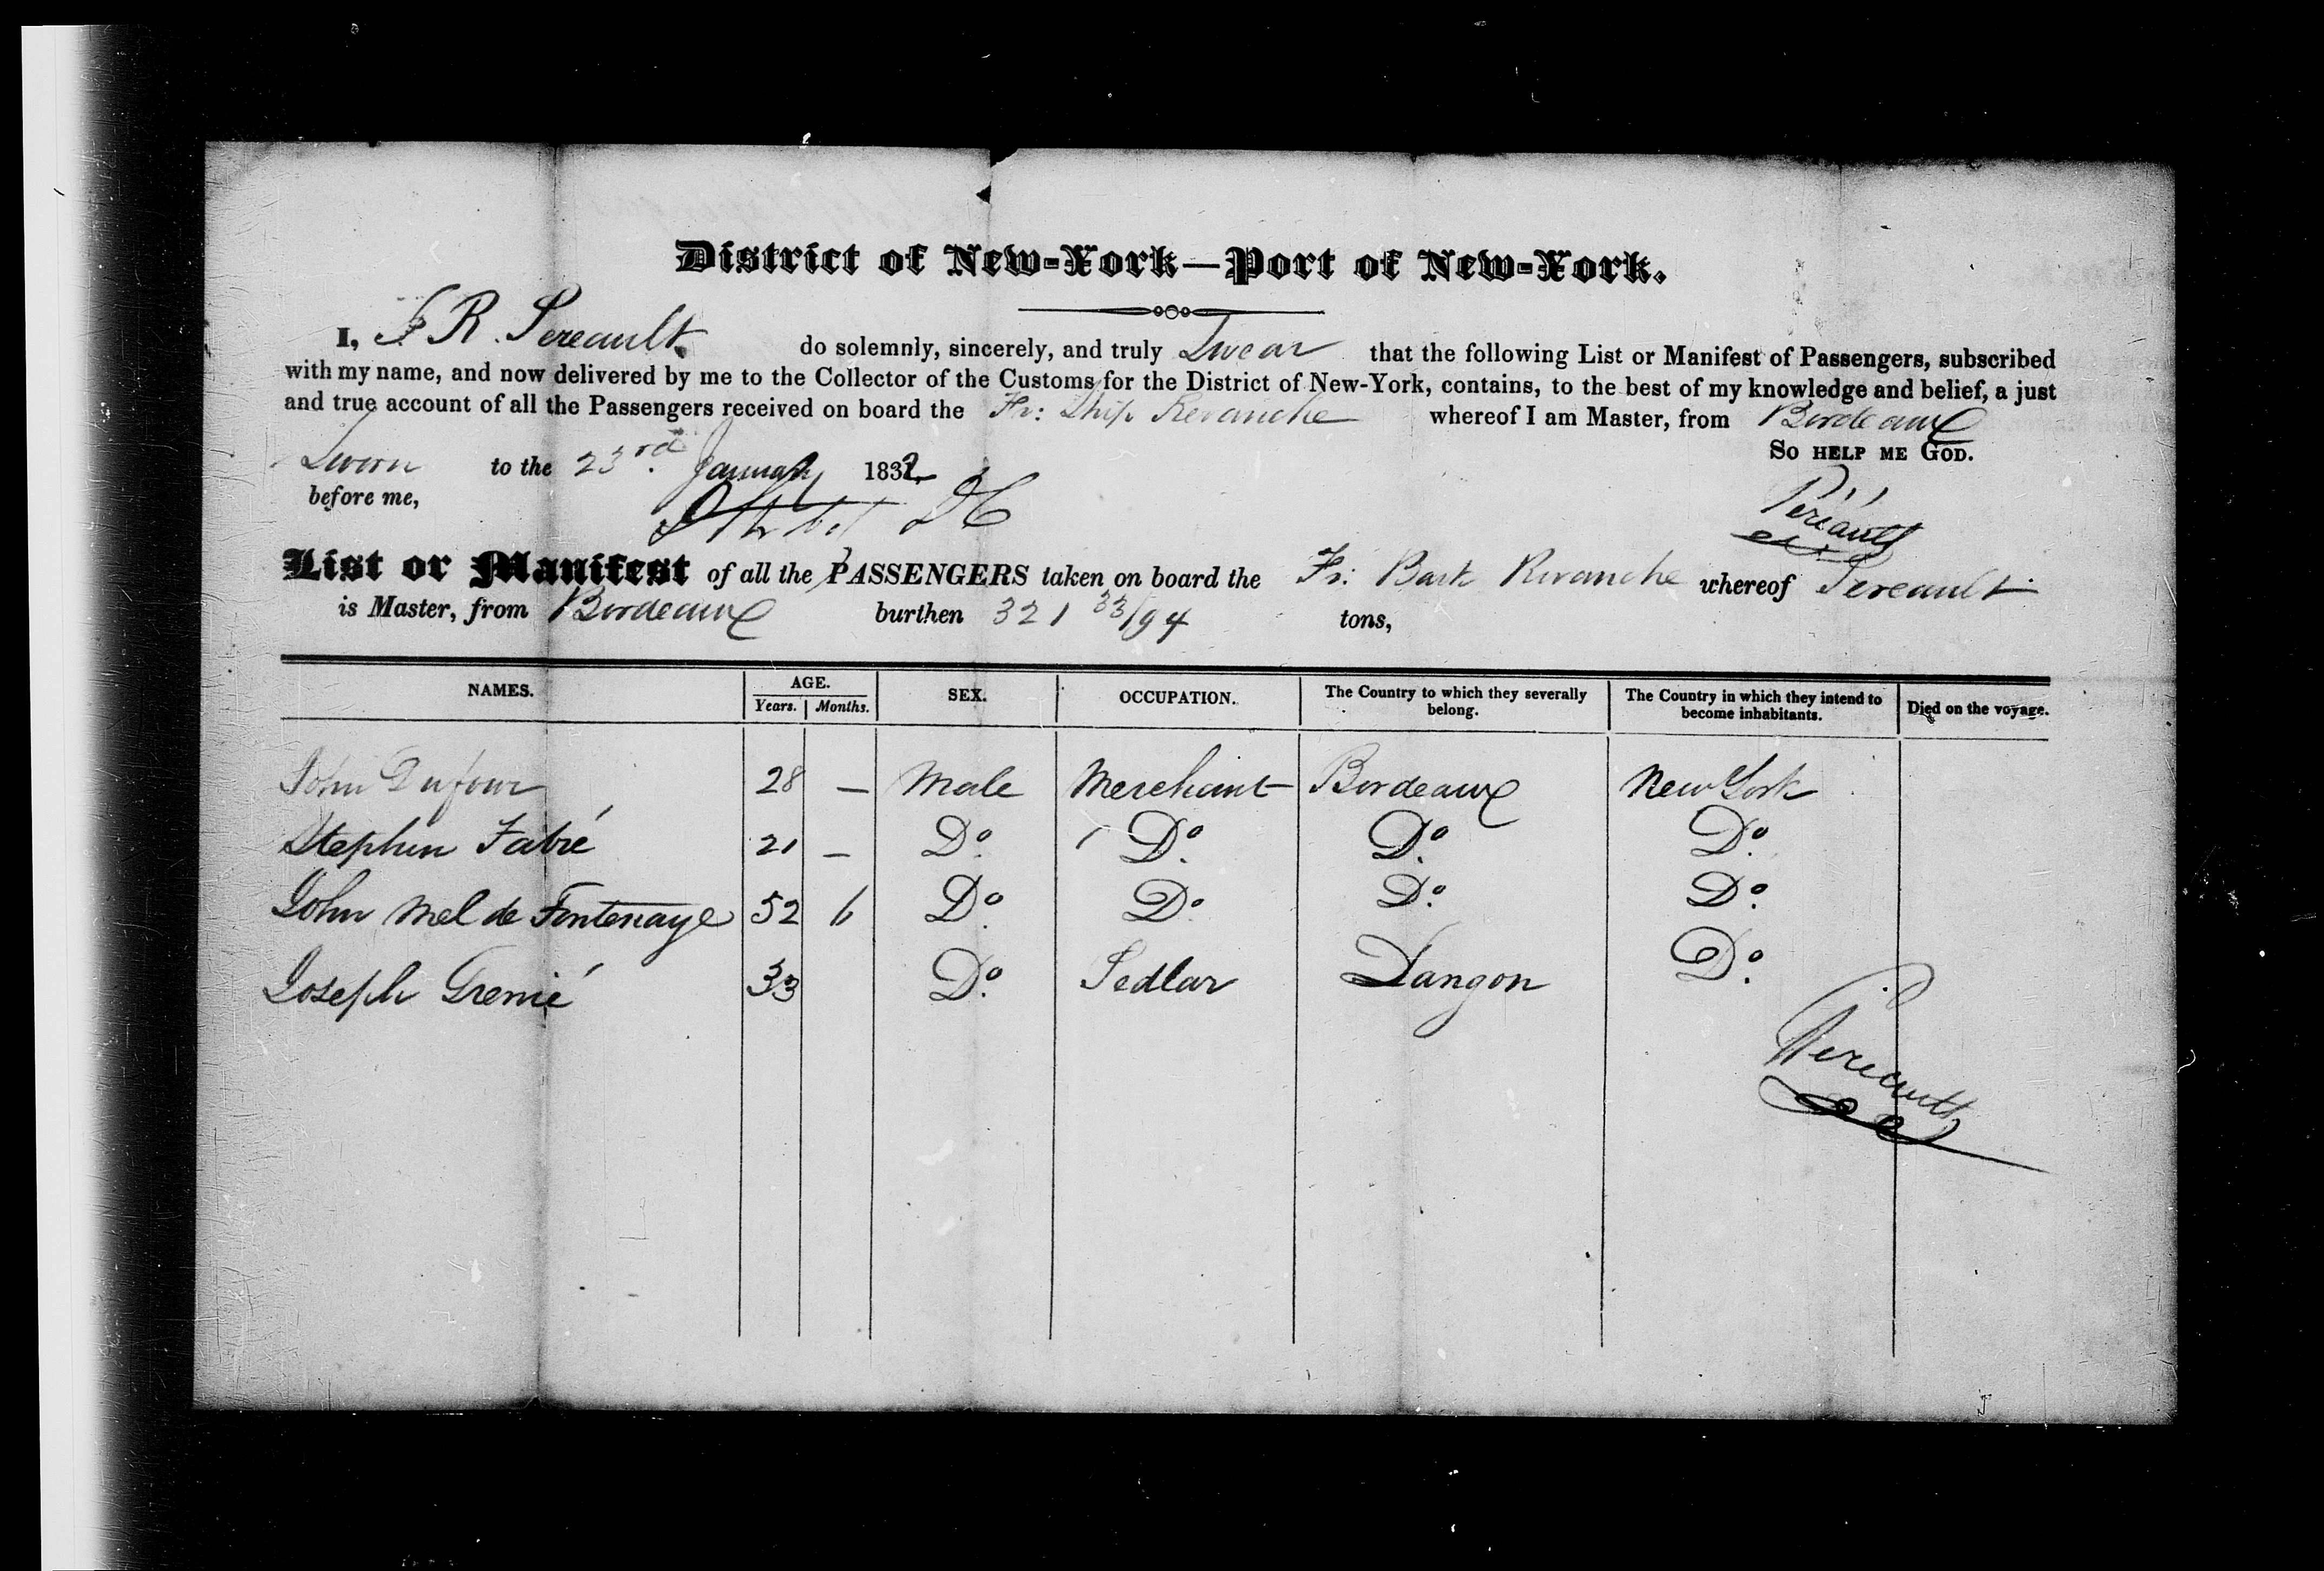 District of New-York—Port of New-York.
I, J R. Pereault do solemnly, sincerely, and truly Swear that the following List or Manifest of Passengers, subscribed
with my name, and now delivered by me to the Collector of the Customs for the District of New-York, contains, to the best of my knowledge and belief, a just
and true account of all the Passengers received on board the Fr: Ship Revanche whereof I am Master, from Bordeaux
So HELP ME GOD.
Sworn to the 23rd January 1832
before me,
DC
Periault
List or Manifest of all the PASSENGERS taken on board the Fr: Bark Revanche whereof Pereault
is Master, from Bordeaux burthen 321 33/94 tons,
NAMES. AGE. Years. Months. SEX. OCCUPATION. The Country to which they severally belong. The Country in which they intend to become inhabitants. Died on the voyage.
John Dufour 28 — Male Merchant Bordeaux New York
Stephen Fabré 21 — Do. Do. Do. Do.
John Mel de Fontenaye 52 6 Do. Do. Do. Do.
Joseph Grenié 33 Do. Pedlar Langon Do.
Periault